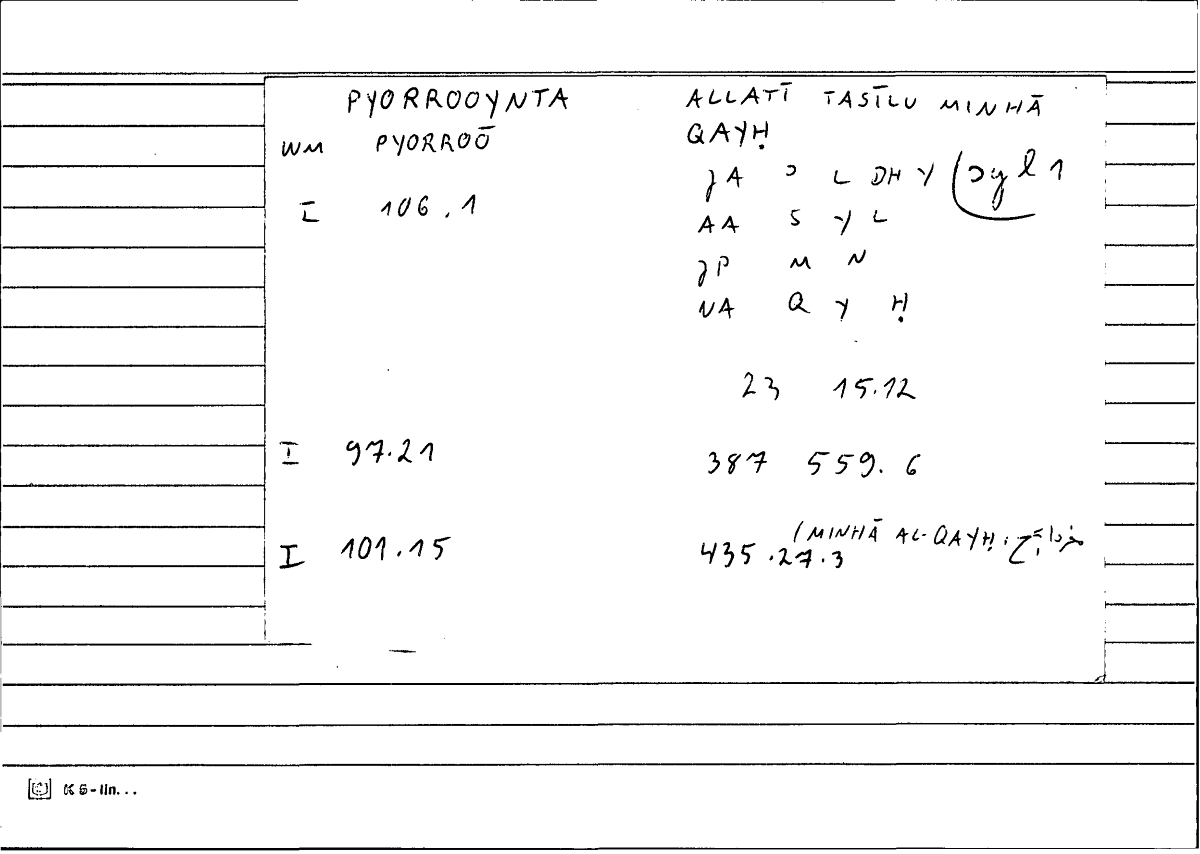 PYORROOYNTA ALLATĪ TASĪLU MINHĀ
WM PYORROŌ QAYḤ
JA Ɔ L DH Y (Ɔyl 1
I 106.1 AA S Y L
JP M N
NA Q Y Ḥ
23 15.12
I 97.21 387 559.6
(MINHĀ AL-QAYḤ:
I 101.15 435.27.3
K 5-lin...